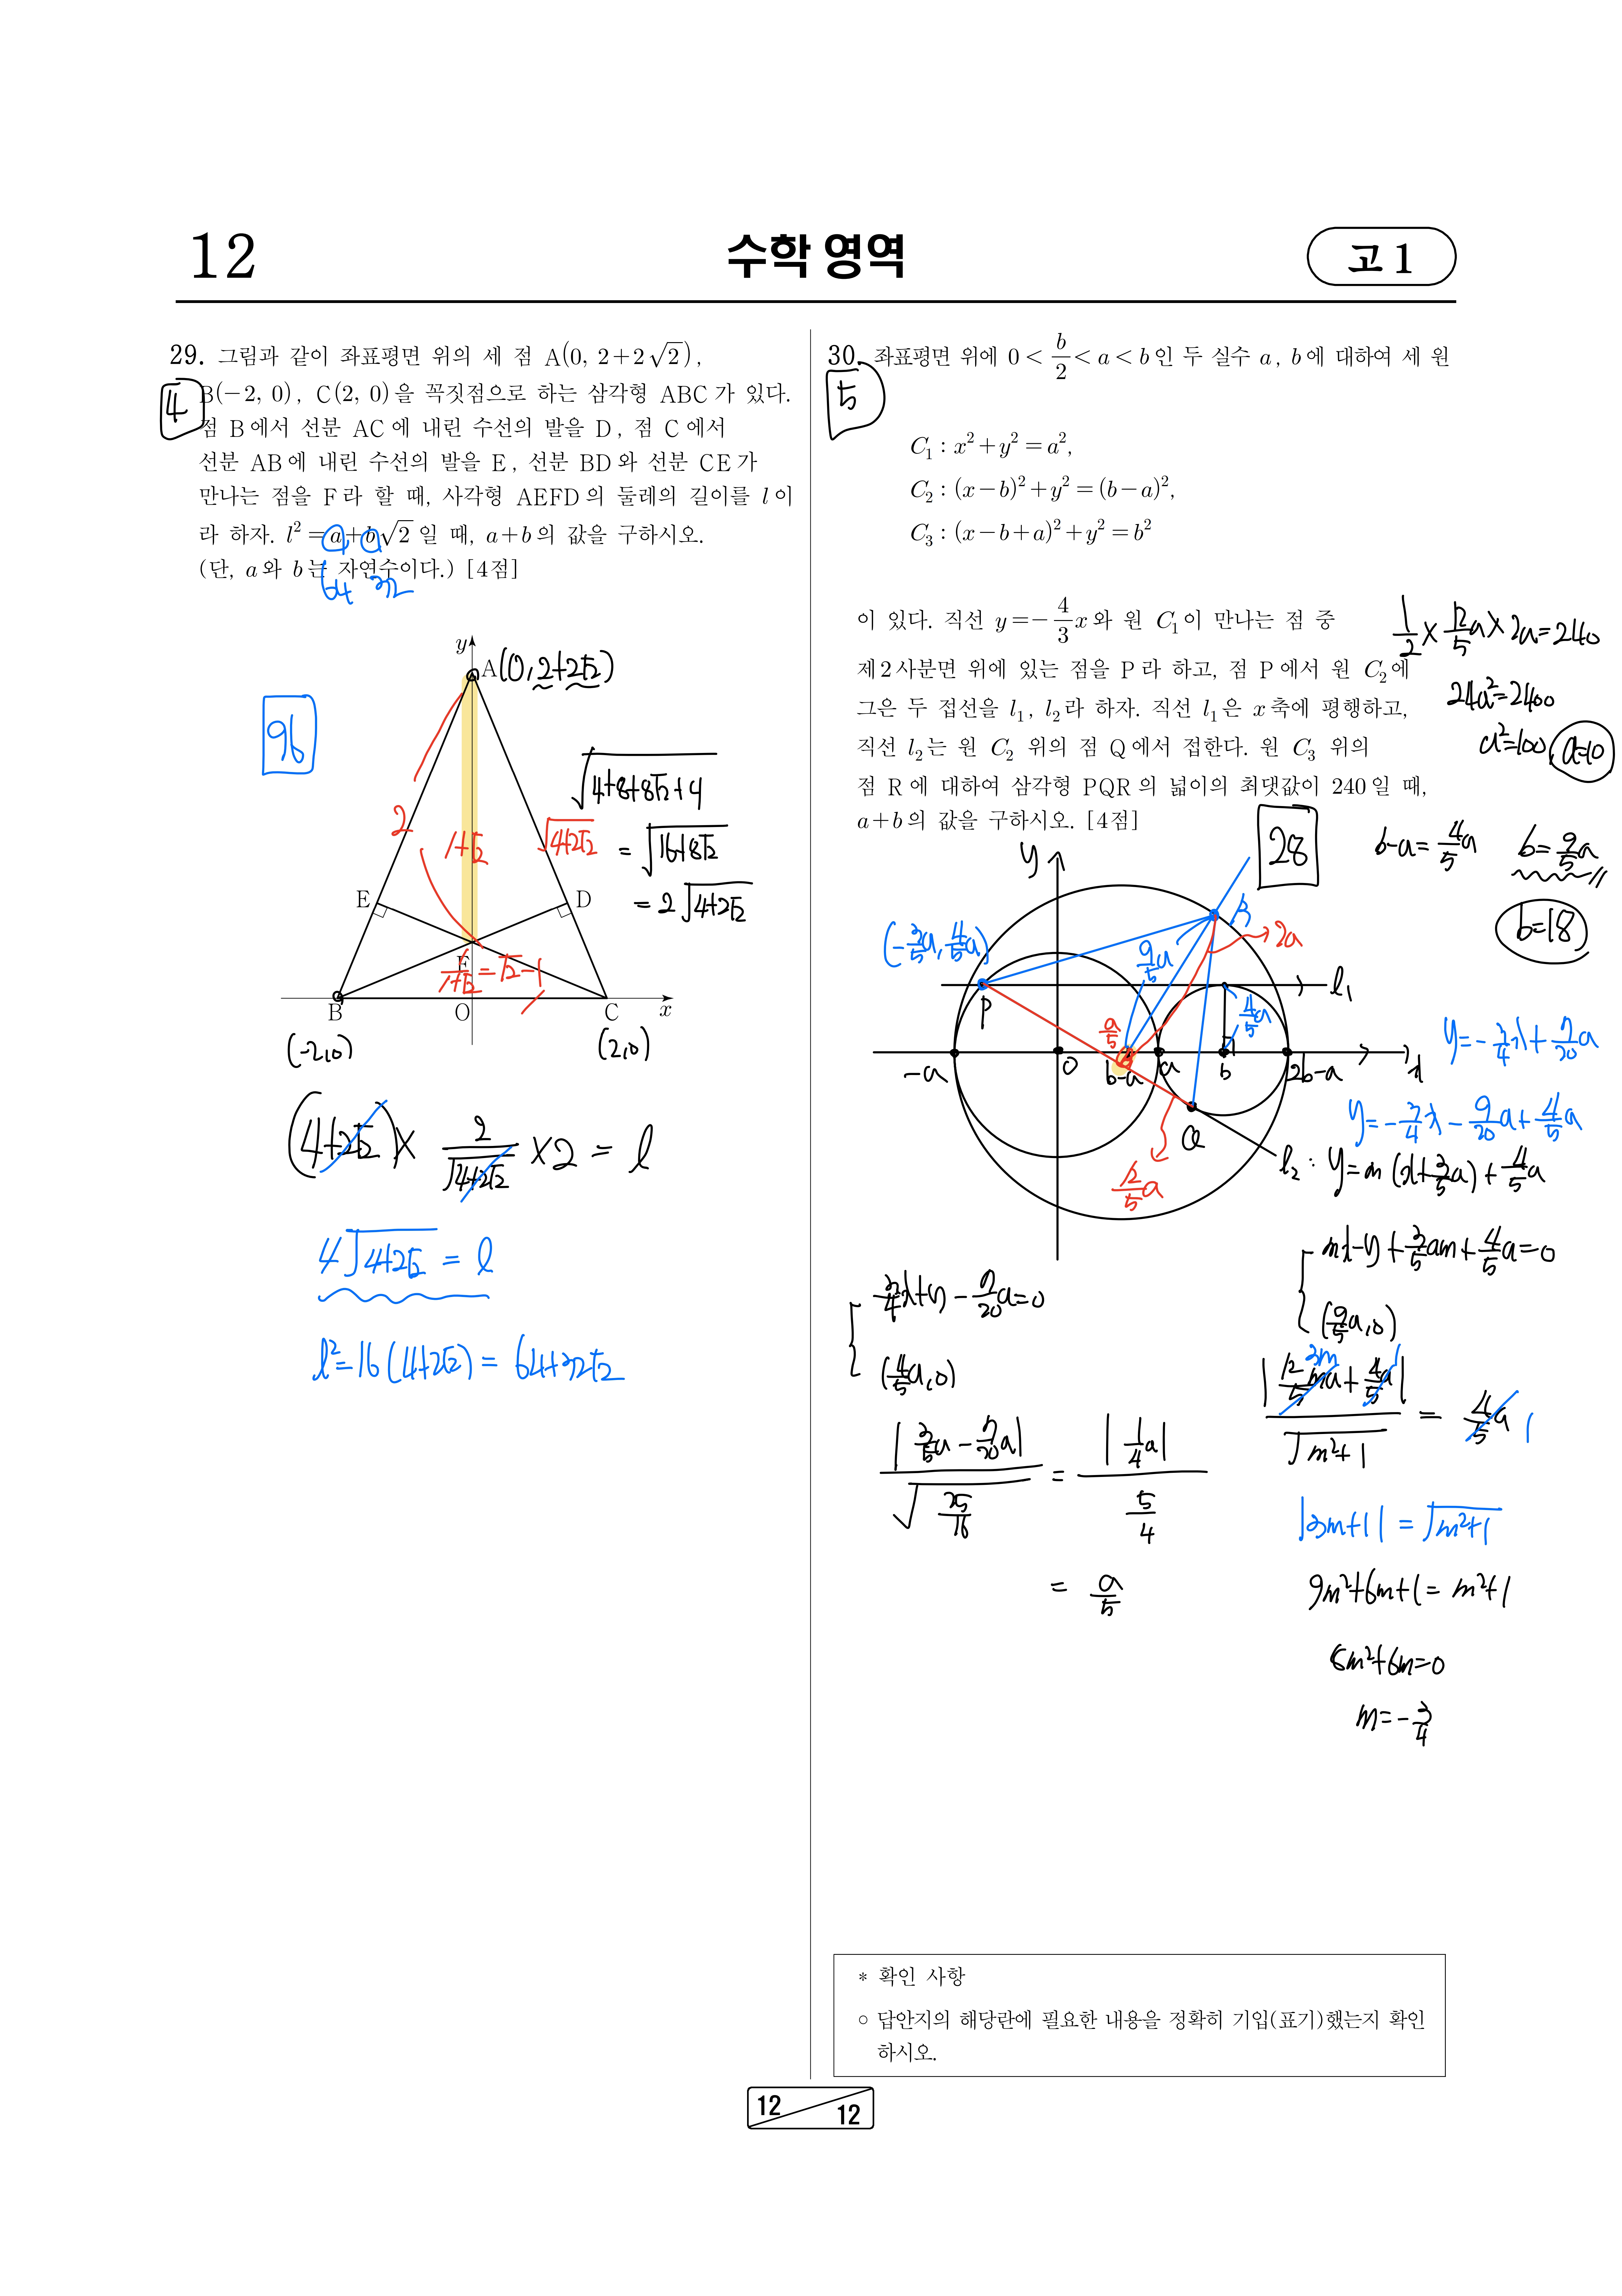 12
수학 영역
고 1
29. 그림과 같이 좌표평면 위의 세 점 A(0, 2+2√2),
4
B(−2, 0), C(2, 0)을 꼭짓점으로 하는 삼각형 ABC가 있다.
점 B에서 선분 AC에 내린 수선의 발을 D, 점 C에서
선분 AB에 내린 수선의 발을 E, 선분 BD와 선분 CE가
만나는 점을 F라 할 때, 사각형 AEFD의 둘레의 길이를 l이
라 하자. l²=a+b√2일 때, a+b의 값을 구하시오.
(단, a와 b는 자연수이다.) [4점]
64 32
96
y
A(0, 2+2√2)
√(4+8+8√2+4)
= √(16+8√2)
= 2√(4+2√2)
2
1+√2
√(4+2√2)
E
D
F
1/(1+√2) = √2−1
B
O
C
x
(−2,0)
(2,0)
(4+2√2) × 2/√(4+2√2) × 2 = l
4√(4+2√2) = l
l²=16(4+2√2) = 64+32√2
30. 좌표평면 위에 0 < b/2 < a < b인 두 실수 a, b에 대하여 세 원
5
C₁ : x²+y²=a²,
C₂ : (x−b)²+y²=(b−a)²,
C₃ : (x−b+a)²+y²=b²
이 있다. 직선 y=−4/3x와 원 C₁이 만나는 점 중
제2사분면 위에 있는 점을 P라 하고, 점 P에서 원 C₂에
그은 두 접선을 l₁, l₂라 하자. 직선 l₁은 x축에 평행하고,
직선 l₂는 원 C₂ 위의 점 Q에서 접한다. 원 C₃ 위의
점 R에 대하여 삼각형 PQR의 넓이의 최댓값이 240일 때,
a+b의 값을 구하시오. [4점]
1/2 × 12/5a × 2a = 240
24a²=2400
a²=100, a=10
28
b−a = 4/5a
b = 9/5a
b=18
y
(−3/5a, 4/5a)
R
2a
9/5a
l₁
P
a/5
4/5a
−a
O
b−a
a
b
2b−a
x
Q
12/5a
y=−3/4x+7/20a
y=−3/4x−9/20a+4/5a
l₂ : y=m(x+3/5a)+4/5a
mx−y+3/5am+4/5a=0
(9/5a,0)
3/4x+y−7/20a=0
(4/5a,0)
|3/5a−7/20a| / √(25/16) = |1/4a| / (5/4)
= a/5
|12/5ma+4/5a| / √(m²+1) = 4/5a
3m 1 1
|3m+1| = √(m²+1)
9m²+6m+1=m²+1
8m²+6m=0
m=−3/4
* 확인 사항
○ 답안지의 해당란에 필요한 내용을 정확히 기입(표기)했는지 확인
하시오.
12
12